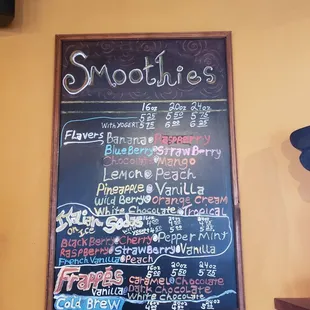 Smoothies
16oz 20oz 24oz
5.25 5.50 5.75
With YOGERT 5.75
Flavers Banana Raspberry
BlueBerry StrawBerry
Chocolate Mango
Lemon Peach
Pineapple Vanilla
Wild Berry Orange Cream
White Chocolate Tropical
Italian Sodas
on ice
BlackBerry Cherry PepperMint
Raspberry StrawBerry Vanilla
French Vanilla Peach
16oz 20oz 24oz
Frappés caramel Chocolate
Vanilla Dark Chocolate
White Chocolate
Cold Brew